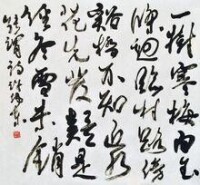 一樹寒梅白玉
條迥臨村路傍
谿橋不知近水
花先發疑是
經冬雪未銷
張謂詩